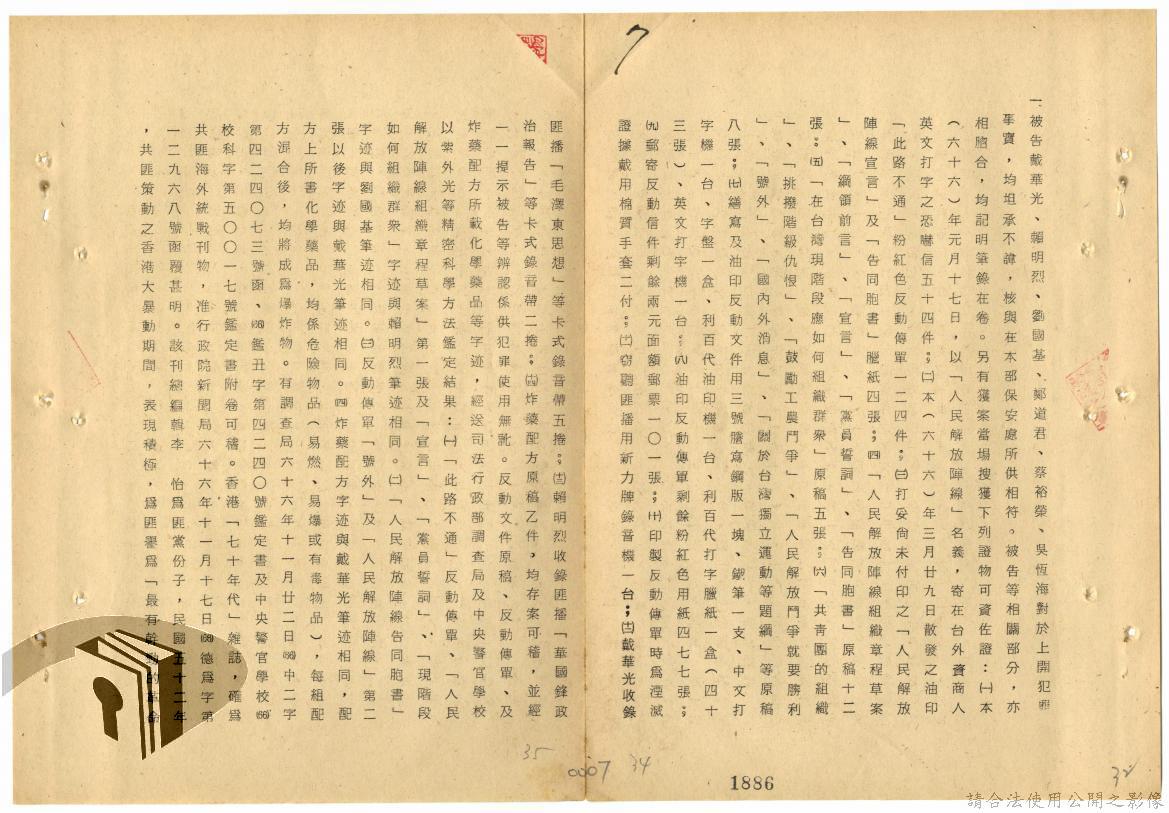 7
一、被告戴華光、賴明烈、劉國基、鄭道君、蔡裕榮、吳恆海對於上開犯罪
事實，均坦承不諱，核與在本部保安處所供相符。被告等相關部分，亦
相脗合，均記明筆錄在卷。另有獲案當場搜獲下列證物可資佐證：㈠本
（六十六）年元月十七日，以「人民解放陣線」名義，寄在台外資商人
英文打字之恐嚇信五十四件；㈡本（六十六）年三月廿九日散發之油印
「此路不通」粉紅色反動傳單一二四件；㈢打妥尚未付印之「人民解放
陣線宣言」及「告同胞書」臘紙四張；㈣「人民解放陣線組織章程草案
」、「綱領前言」、「宣言」、「黨員誓詞」、「告同胞書」原稿十二
張；㈤「在台灣現階段應如何組織群衆」原稿五張；㈥「共青團的組織
」、「挑撥階級仇恨」、「鼓勵工農鬥爭」、「人民解放鬥爭就要勝利
」、「號外」、「國內外消息」、「關於台灣獨立運動等題綱」等原稿
八張；㈦繕寫及油印反動文件用三號謄寫鋼版一塊、鐵筆一支、中文打
字機一台、字盤一盒、利百代油印機一台、利百代打字臘紙一盒（四十
三張）、英文打字機一台；㈧油印反動傳單剩餘粉紅色用紙四七七張；
㈨郵寄反動信件剩餘兩元面額郵票一〇一張；㈩印製反動傳單時爲湮滅
證據戴用棉質手套二付；㈪竊聽匪播用新力牌錄音機一台；㈫戴華光收錄
匪播「毛澤東思想」等卡式錄音帶五捲；㈬賴明烈收錄匪播「華國鋒政
治報告」等卡式錄音帶二捲；㈭炸藥配方原稿乙件，均存案可稽，並經
一一提示被告等辨認係供犯罪使用無訛。反動文件原稿、反動傳單、及
炸藥配方所載化學藥品等字迹，經送司法行政部調查局及中央警官學校
以紫外光等精密科學方法鑑定結果：㈠「此路不通」反動傳單、「人民
解放陣線組織章程草案」第一張及「宣言」、「黨員誓詞」、「現階段
如何組織群衆」字迹與賴明烈筆迹相同。㈡「人民解放陣線告同胞書」
字迹與劉國基筆迹相同。㈢反動傳單「號外」及「人民解放陣線」第二
張以後字迹與戴華光筆迹相同。㈣炸藥配方字迹與戴華光筆迹相同，配
方上所書化學藥品，均係危險物品（易燃、易爆或有毒物品），每組配
方混合後，均將成爲爆炸物。有調查局六十六年十一月廿二日(66)中二字
第四二四〇七三號函、(66)鑑丑字第四二四〇號鑑定書及中央警官學校(66)
校科字第五〇〇一七號鑑定書附卷可稽。香港「七十年代」雜誌，確爲
共匪海外統戰刊物，准行政院新聞局六十六年十一月十七日(66)德爲字第
一二九六八號函覆甚明。該刊總編輯李　怡爲匪黨份子，民國五十二年
，共匪策動之香港大暴動期間，表現積極，爲匪譽爲「最有幹勁的革命
35
0007
34
1886
32
請合法使用公開之影像